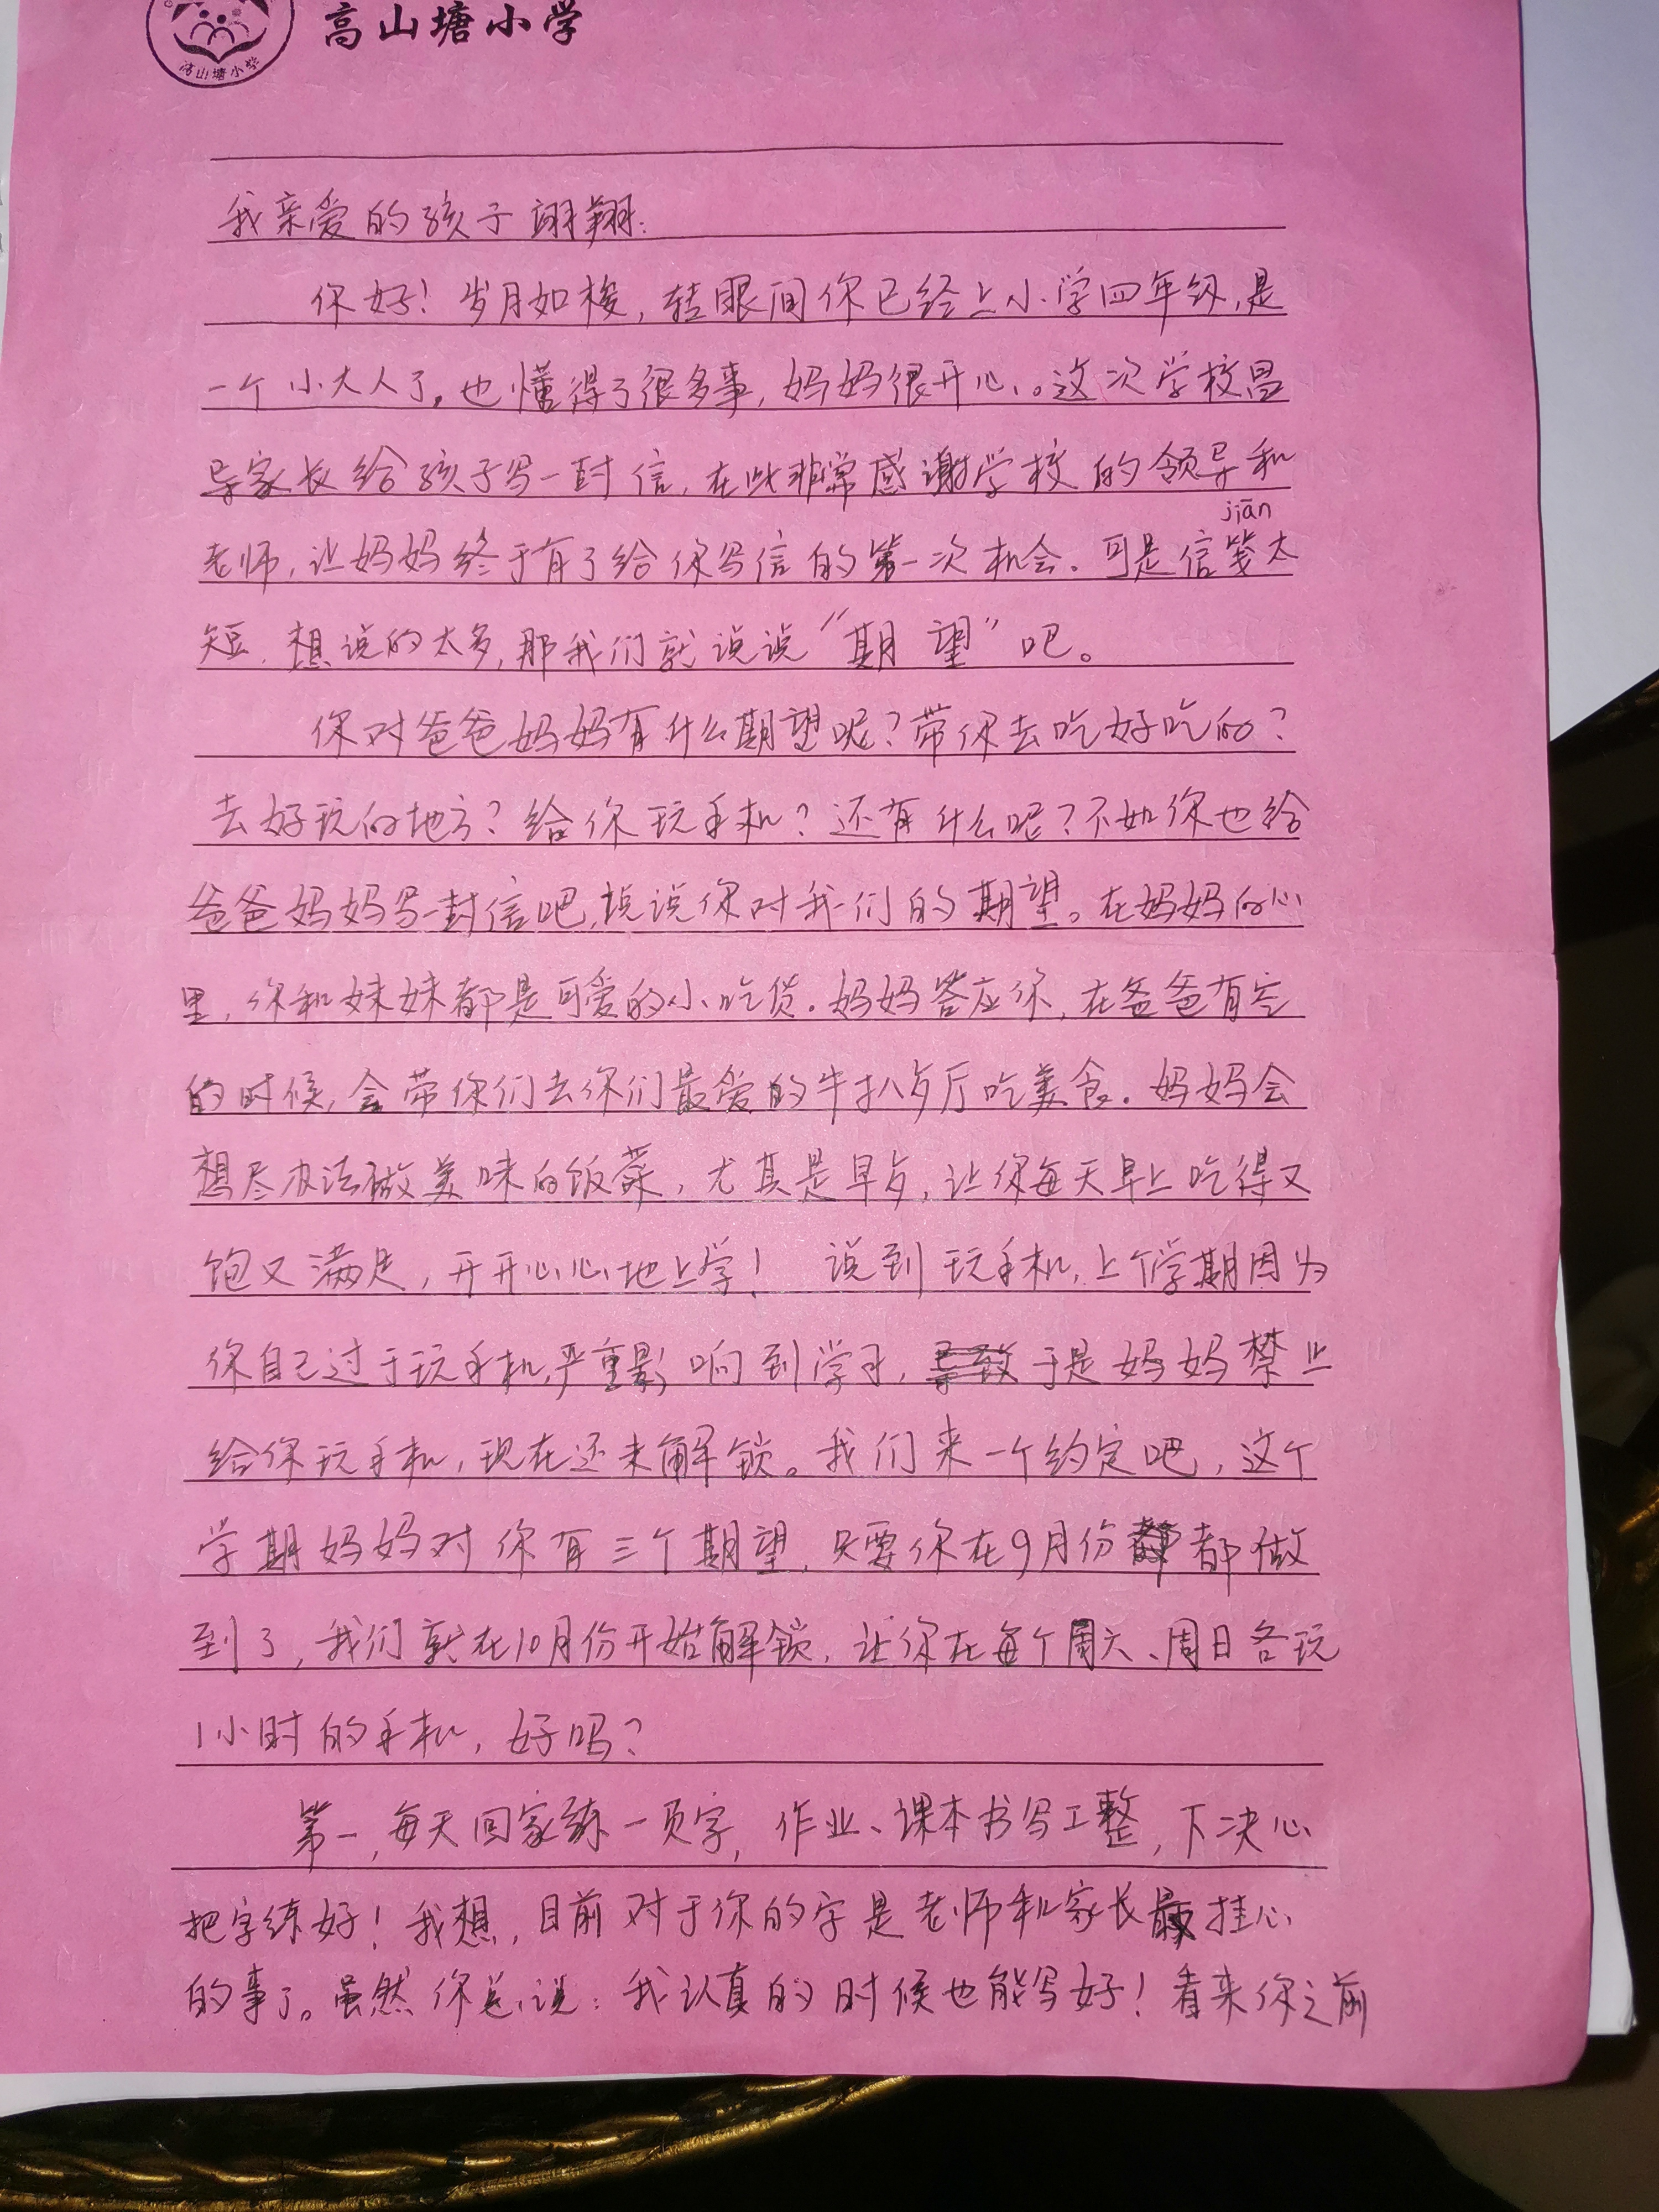 高山塘小学
高山塘小学
我亲爱的孩子翊翔:
你好！岁月如梭，转眼间你已经上小学四年级，是
一个小大人了。也懂得了很多事，妈妈很开心。这次学校昌
导家长给孩子写一封信，在此非常感谢学校的领导和
jiān
老师，让妈妈终于有了给你写信的第一次机会。可是信笺太
短，想说的太多，那我们就说说“期望”吧。
你对爸爸妈妈有什么期望呢？带你去吃好吃的？
去好玩的地方？给你玩手机？还有什么呢？不如你也给
爸爸妈妈写一封信吧，说说你对我们的期望。在妈妈的心
里，你和妹妹都是可爱的小吃货。妈妈答应你，在爸爸有空
的时候，会带你们去你们最爱的牛扒歺厅吃美食。妈妈会
想尽办法做美味的饭菜，尤其是早歺，让你每天早上吃得又
饱又满足，开开心心地上学！说到玩手机，上个学期因为
你自己过于玩手机，严重影响到学习，于是妈妈禁止
给你玩手机，现在还未解锁。我们来一个约定吧，这个
学期妈妈对你有三个期望，只要你在9月份都做
到了，我们就在10月份开始解锁，让你在每个周六、周日各玩
1小时的手机，好吗？
第一，每天回家练一页字，作业、课本书写工整，下决心
把字练好！我想，目前对于你的字是老师和家长最挂心
的事了。虽然你总说：我认真的时候也能写好！看来你之前